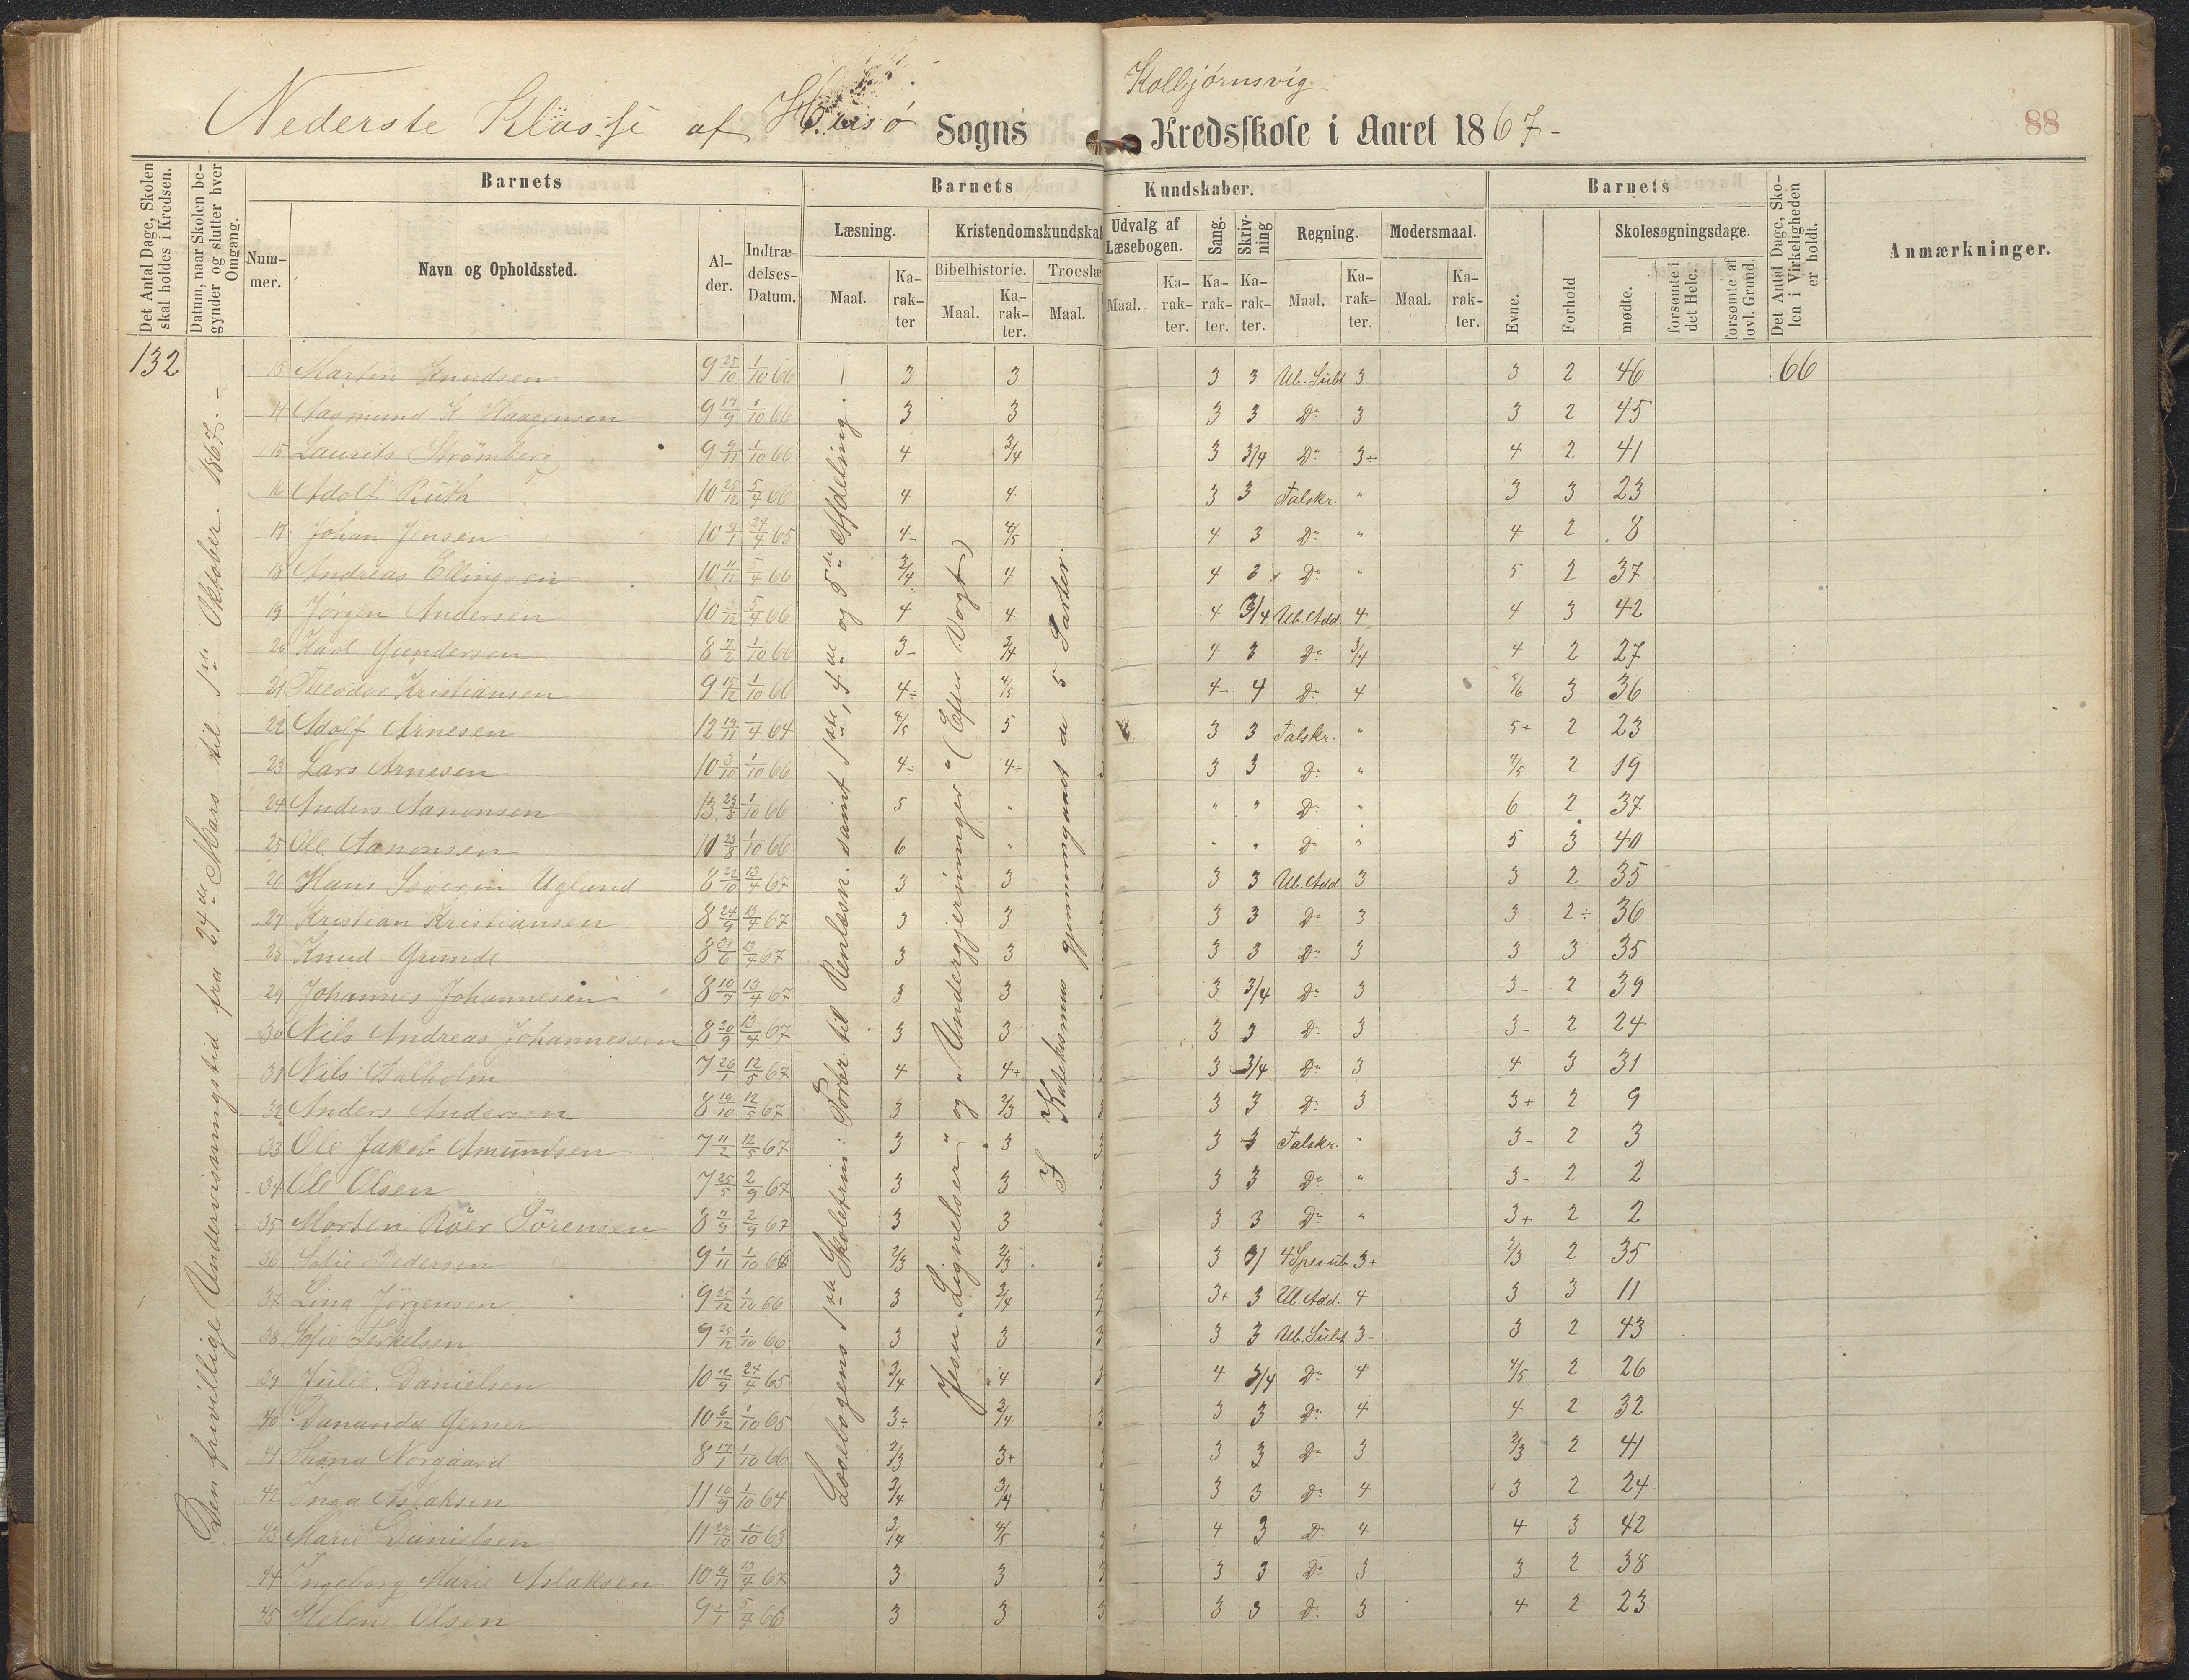 Kolbjørnsvig
Nederste Klasse af Hisø Sogns Kredsskole i Aaret 1867-
88
Det Antal Dage, Skolen skal holdes i Kredsen.
Datum, naar Skolen begynder og slutter hver Omgang.
Barnets
Barnets Kundskaber.
Barnets
Det Antal Dage, Skolen i Virkeligheden er holdt.
Anmærkninger.
Nummer.
Navn og Opholdssted.
Alder.
Indtrædelses-Datum.
Læsning.
Kristendomskundskab
Udvalg af Læsebogen.
Sang.
Skrivning
Regning.
Modersmaal.
Evne.
Forhold
Skolesøgningsdage.
Bibelhistorie.
Troeslæ
Maal. Karakter Maal. Karakter. Maal. Maal. Karakter. Karakter. Karakter. Maal. Karakter. Maal. Karakter.
mødte.
forsømte i det Hele.
forsømte af lovl. Grund.
132
Den frivillige Undervisningstid fra 24de Mars til 1ste Oktober 1867. -
Læsebogens 1ste Skoletrin: Forbr. til Renlæsn. samt 1ste, 4de og 5te Afdeling.
Jesu "Lignelser" og "Undergjerninger" (Efter Vogt)
I Katekismus gjennemgaaet de 5 Parter.
13 Martin Knudsen 9 25/10 1/10 66 3 3 3 3 Ub. Subt 3 3 2 46 66
14 Aasmund K. Haagensen 9 17/9 1/10 66 3 3 3 3 Do 3 3 2 45
15 Laurits Strømberg 9 9/11 1/10 66 4 3/4 3 3/4 Do 3÷ 4 2 41
16 Adolf Ruth 10 25/12 5/4 66 4 4 3 3 Talskr. " 3 3 23
17 Johan Jensen 10 9/1 24/4 65 4- 4/5 4 3 Do " 4 2 8
18 Andreas Ellingsen 10 11/12 5/4 66 3/4 4 4 3 Do " 5 2 37
19 Jørgen Andersen 10 3/12 5/4 66 4 4 4 3/4 Ub. Add. 4 4 3 42
20 Karl Gundersen 8 7/2 1/10 66 3- 3/4 4 3 Do 3/4 4 2 27
21 Theodor Kristiansen 9 15/12 1/10 66 4÷ 4/5 4- 4 Do 4 5/6 3 36
22 Adolf Arnesen 12 19/11 4 64 4/5 5 3 3 Talskr. " 5+ 2 23
23 Lars Arnesen 10 3/10 1/10 66 4÷ 4÷ 3 3 Do " 4/5 2 19
24 Anders Aanonsen 13 23/8 1/10 66 5 " " " Do " 6 2 37
25 Ole Aanonsen 10 23/8 1/10 66 6 " " " Do " 5 3 40
26 Hans Severin Ugland 8 22/10 13/4 67 3 3 3 3 Ub. Add. 3 3 2 35
27 Kristian Kristiansen 8 24/9 13/4 67 3 3 3 3 Do 3 3 2÷ 36
28 Knud Grunde 8 21/6 13/4 67 3 3 3 3 Do 3 3 3 35
29 Johannes Johannesen 8 10/7 13/4 67 3 3 3 3/4 Do 3 3- 2 39
30 Nils Andreas Johannessen 8 20/9 13/4 67 3 3 3 3 Do 3 3- 2 24
31 Nils Dalholm 7 26/1 12/5 67 4 4+ 3 3/4 Do 3 4 3 31
32 Anders Andersen 8 19/10 12/5 67 3 2/3 3 3 Do 3 3+ 2 9
33 Ole Jakob Amundsen 7 11/2 12/5 67 3 3 3 3 Talskr. " 3- 2 3
34 Ole Olsen 7 25/5 2/9 67 3 3 3 3 Do " 3- 2 2
35 Morten Röer Sörensen 8 7/9 2/9 67 3 3 3 3 Do " 3+ 2 2
36 Sofie Pedersen 9 1/11 1/10 66 2/3 2/3 3 3/ 4 Spes. ub. 3+ 2/3 2 35
37 Lina Jörgensen 9 25/12 1/10 66 3 3/4 3+ 3 Ub. Add. 4 3 3 11
38 Sofie Terkelsen 9 25/12 1/10 66 3 3 3 3 Ub. Subt 3- 3 2 43
39 Julie Danielsen 10 12/9 24/4 65 3/4 4 4 3/4 Do 4 4/5 2 26
40 Dananda Gerner 10 6/12 1/10 65 3÷ 3/4 3 3 Do 4 4 2 32
41 Thona Norgaard 8 17/1 1/10 66 2/3 3+ 3 3 Do 3 2/3 2 41
42 Inga Aslaksen 11 10/9 1/10 64 3/4 3/4 3 3 Do 4 3 2 24
43 Marie Danielsen 11 24/10 1/10 63 3/4 4/5 4 3 Do 4 4 3 42
44 Ingeborg Marie Aslaksen 10 9/11 13/4 67 3 3 3 3 Do 3 3 2 38
45 Helene Olsen 9 1/1 5/4 66 3 3 3 3 Do 3 4 2 23